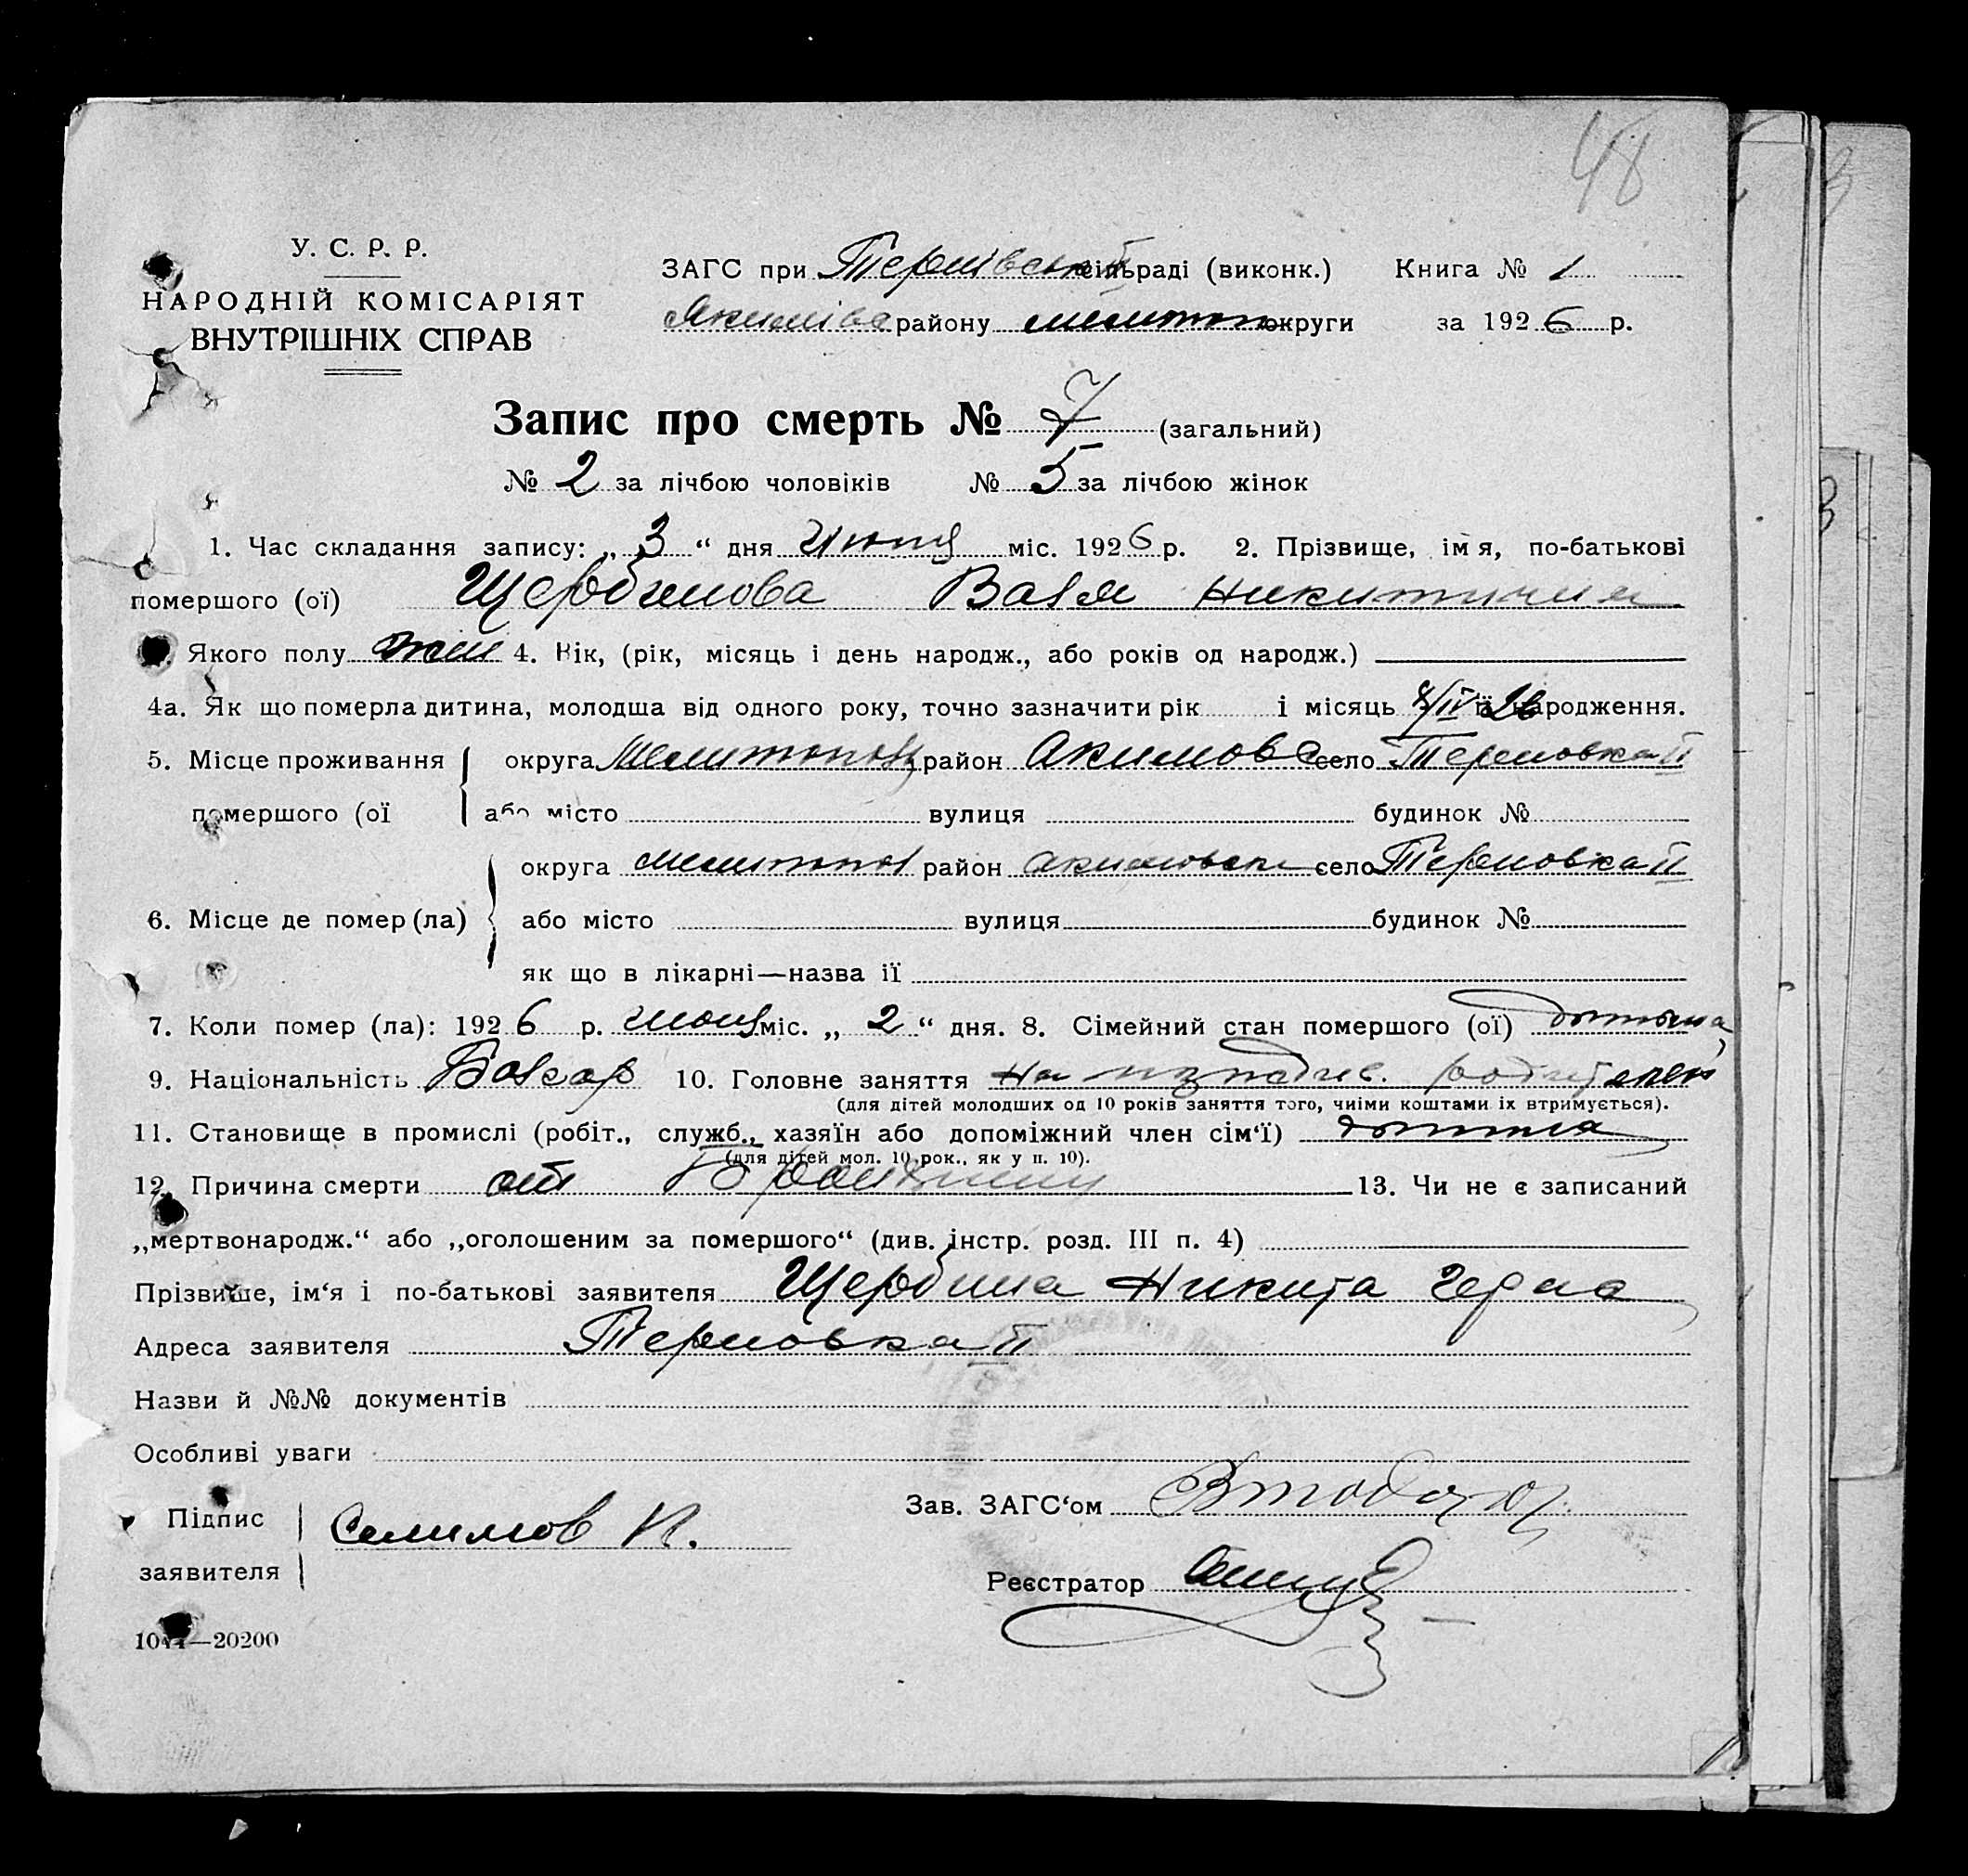 48
У. С. Р. Р.
НАРОДНІЙ КОМІСАРІЯТ
ВНУТРІШНІХ СПРАВ
ЗАГС при Тернівській сільраді (виконк.) Книга № 1
району округи за 1926 р.
Запис про смерть № 7 (загальний)
№ 2 за лічбою чоловіків № 5 за лічбою жінок
1. Час складання запису: „ 3 “ дня Июня міс. 1926 р. 2. Прізвище, імя, по-батькові
помершого (ої) Никитична
Якого полу жен 4. Вік, (рік, місяць і день народж., або років од народж.)
4а. Як що померла дитина, молодша від одного року, точно зазначити рік і місяць народження.
5. Місце проживання округа район село Терновка II
помершого (ої або місто вулиця будинок №
округа район село Терновка II
6. Місце де помер (ла) або місто вулиця будинок №
як що в лікарні—назва її
7. Коли помер (ла): 1926 р. июня міс. „ 2 “ дня. 8. Сімейний стан помершого (ої)
9. Національність 10. Головне заняття На
(для дітей молодших од 10 років заняття того, чиїми коштами їх втримується).
11. Становище в промислі (робіт., служб., хазяїн або допоміжний член сім‘ї)
(для дітей мол. 10 рок., як у п. 10).
12. Причина смерти от 13. Чи не є записаний
„мертвонародж.“ або „оголошеним за помершого“ (див. інстр. розд. III п. 4)
Прізвище, ім‘я і по-батькові заявителя Щербина Никита
Адреса заявителя Терновка II
Назви й №№ документів
Особливі уваги
Підпис
заявителя Селимов К.
Зав. ЗАГС‘ом
Реєстратор
—20200